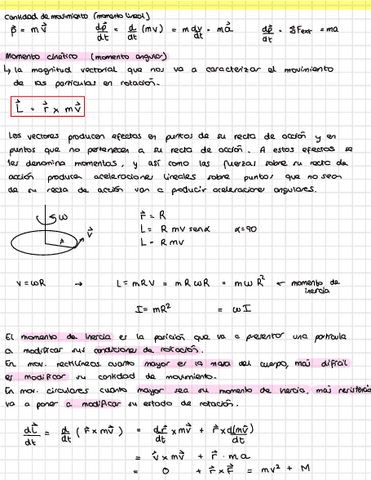 Cantidad de movimiento (momento lineal)
p⃗ = m v⃗    dp⃗/dt = d/dt (mv) = m dv/dt = ma⃗    dp⃗/dt = ΣFext = ma
Momento cinético (momento angular)
↳ la magnitud vectorial que nos va a caracterizar el movimiento
de las partículas en rotación.
L⃗ = r⃗ × mv⃗
Los vectores producen efectos en puntos de su recta de acción y en
puntos que no pertenecen a su recta de acción. A estos efectos se
les denomina momentos, y así como las fuerzas sobre su recta de
acción producen aceleraciones lineales sobre puntos que no sean
de su recta de acción van a producir aceleraciones angulares.
ω
R
v⃗
r⃗ = R
L = R mv senα    α=90
L = R mv
v = ωR → L = mRV = mR ωR = mωR² ← momento de
inercia
I = mR² = ωI
El momento de inercia es la que va a presentar una partícula
a modificar sus condiciones de rotación.
En mov. rectilíneos cuanto mayor es la masa del cuerpo, más difícil
es modificar su cantidad de movimiento.
En mov. circulares cuanto mayor sea su momento de inercia, más resistencia
va a poner a modificar su estado de rotación.
dL⃗/dt = d/dt (r⃗ × mv⃗) = dr⃗/dt × mv⃗ + r⃗ × d(mv⃗)/dt
= v⃗ × mv⃗ + r⃗ · ma
= 0 + r⃗ × F⃗ = mv² + M